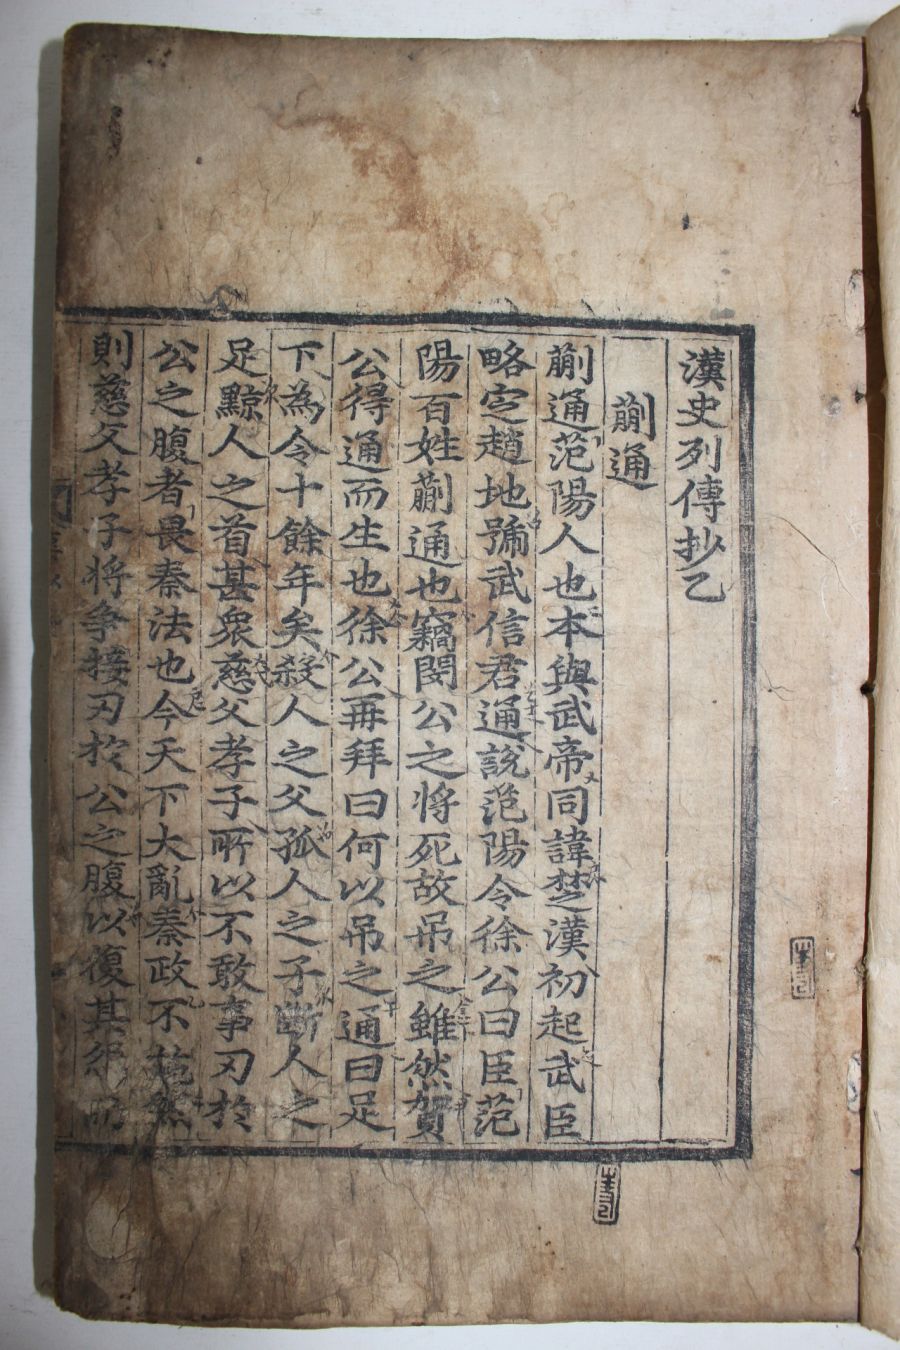 漢史列傳抄乙
蒯通
蒯通范陽人也本與武帝同諱楚漢初起武臣
略定趙地號武信君通說范陽令徐公曰臣范
陽百姓蒯通也竊閔公之將死故吊之雖然賀
公得通而生也徐公再拜曰何以吊之通曰足
下為令十餘年矣殺人之父孤人之子斷人之
足黥人之首甚衆慈父孝子所以不敢事刃於
公之腹者畏秦法也今天下大亂秦政不施然
則慈父孝子將爭接刃於公之腹以復其怨而